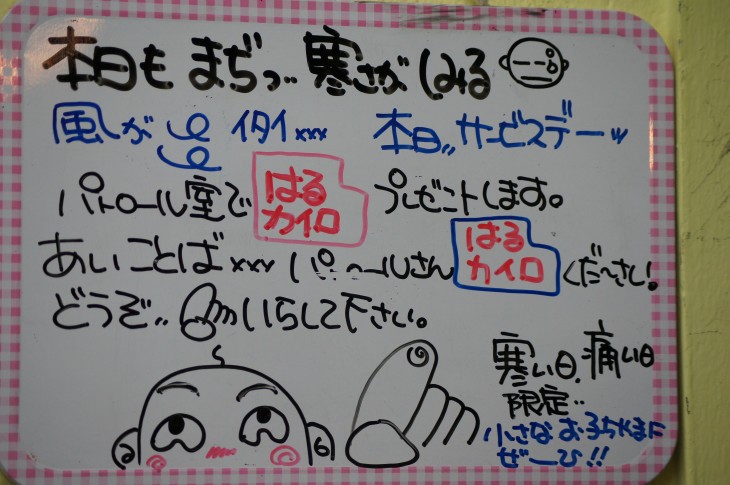 本日も まぢっ.. 寒さが はる
風が イタイ××× 本日,, サービスデーッ
パトロール室で はるカイロ プレゼントします。
あいことば××× パトロールさん はるカイロ くだ〜さい!
どうぞ,, いらして下さい。
寒い日、痛い日
限定..
小さな お子ちゃまに
ぜーひ!!